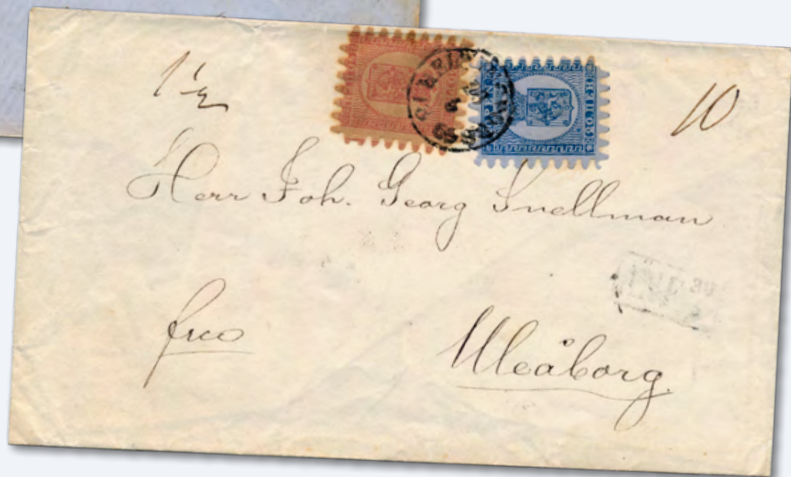 1½
10
Herr Joh. Georg Snellman
frco
Uleåborg.